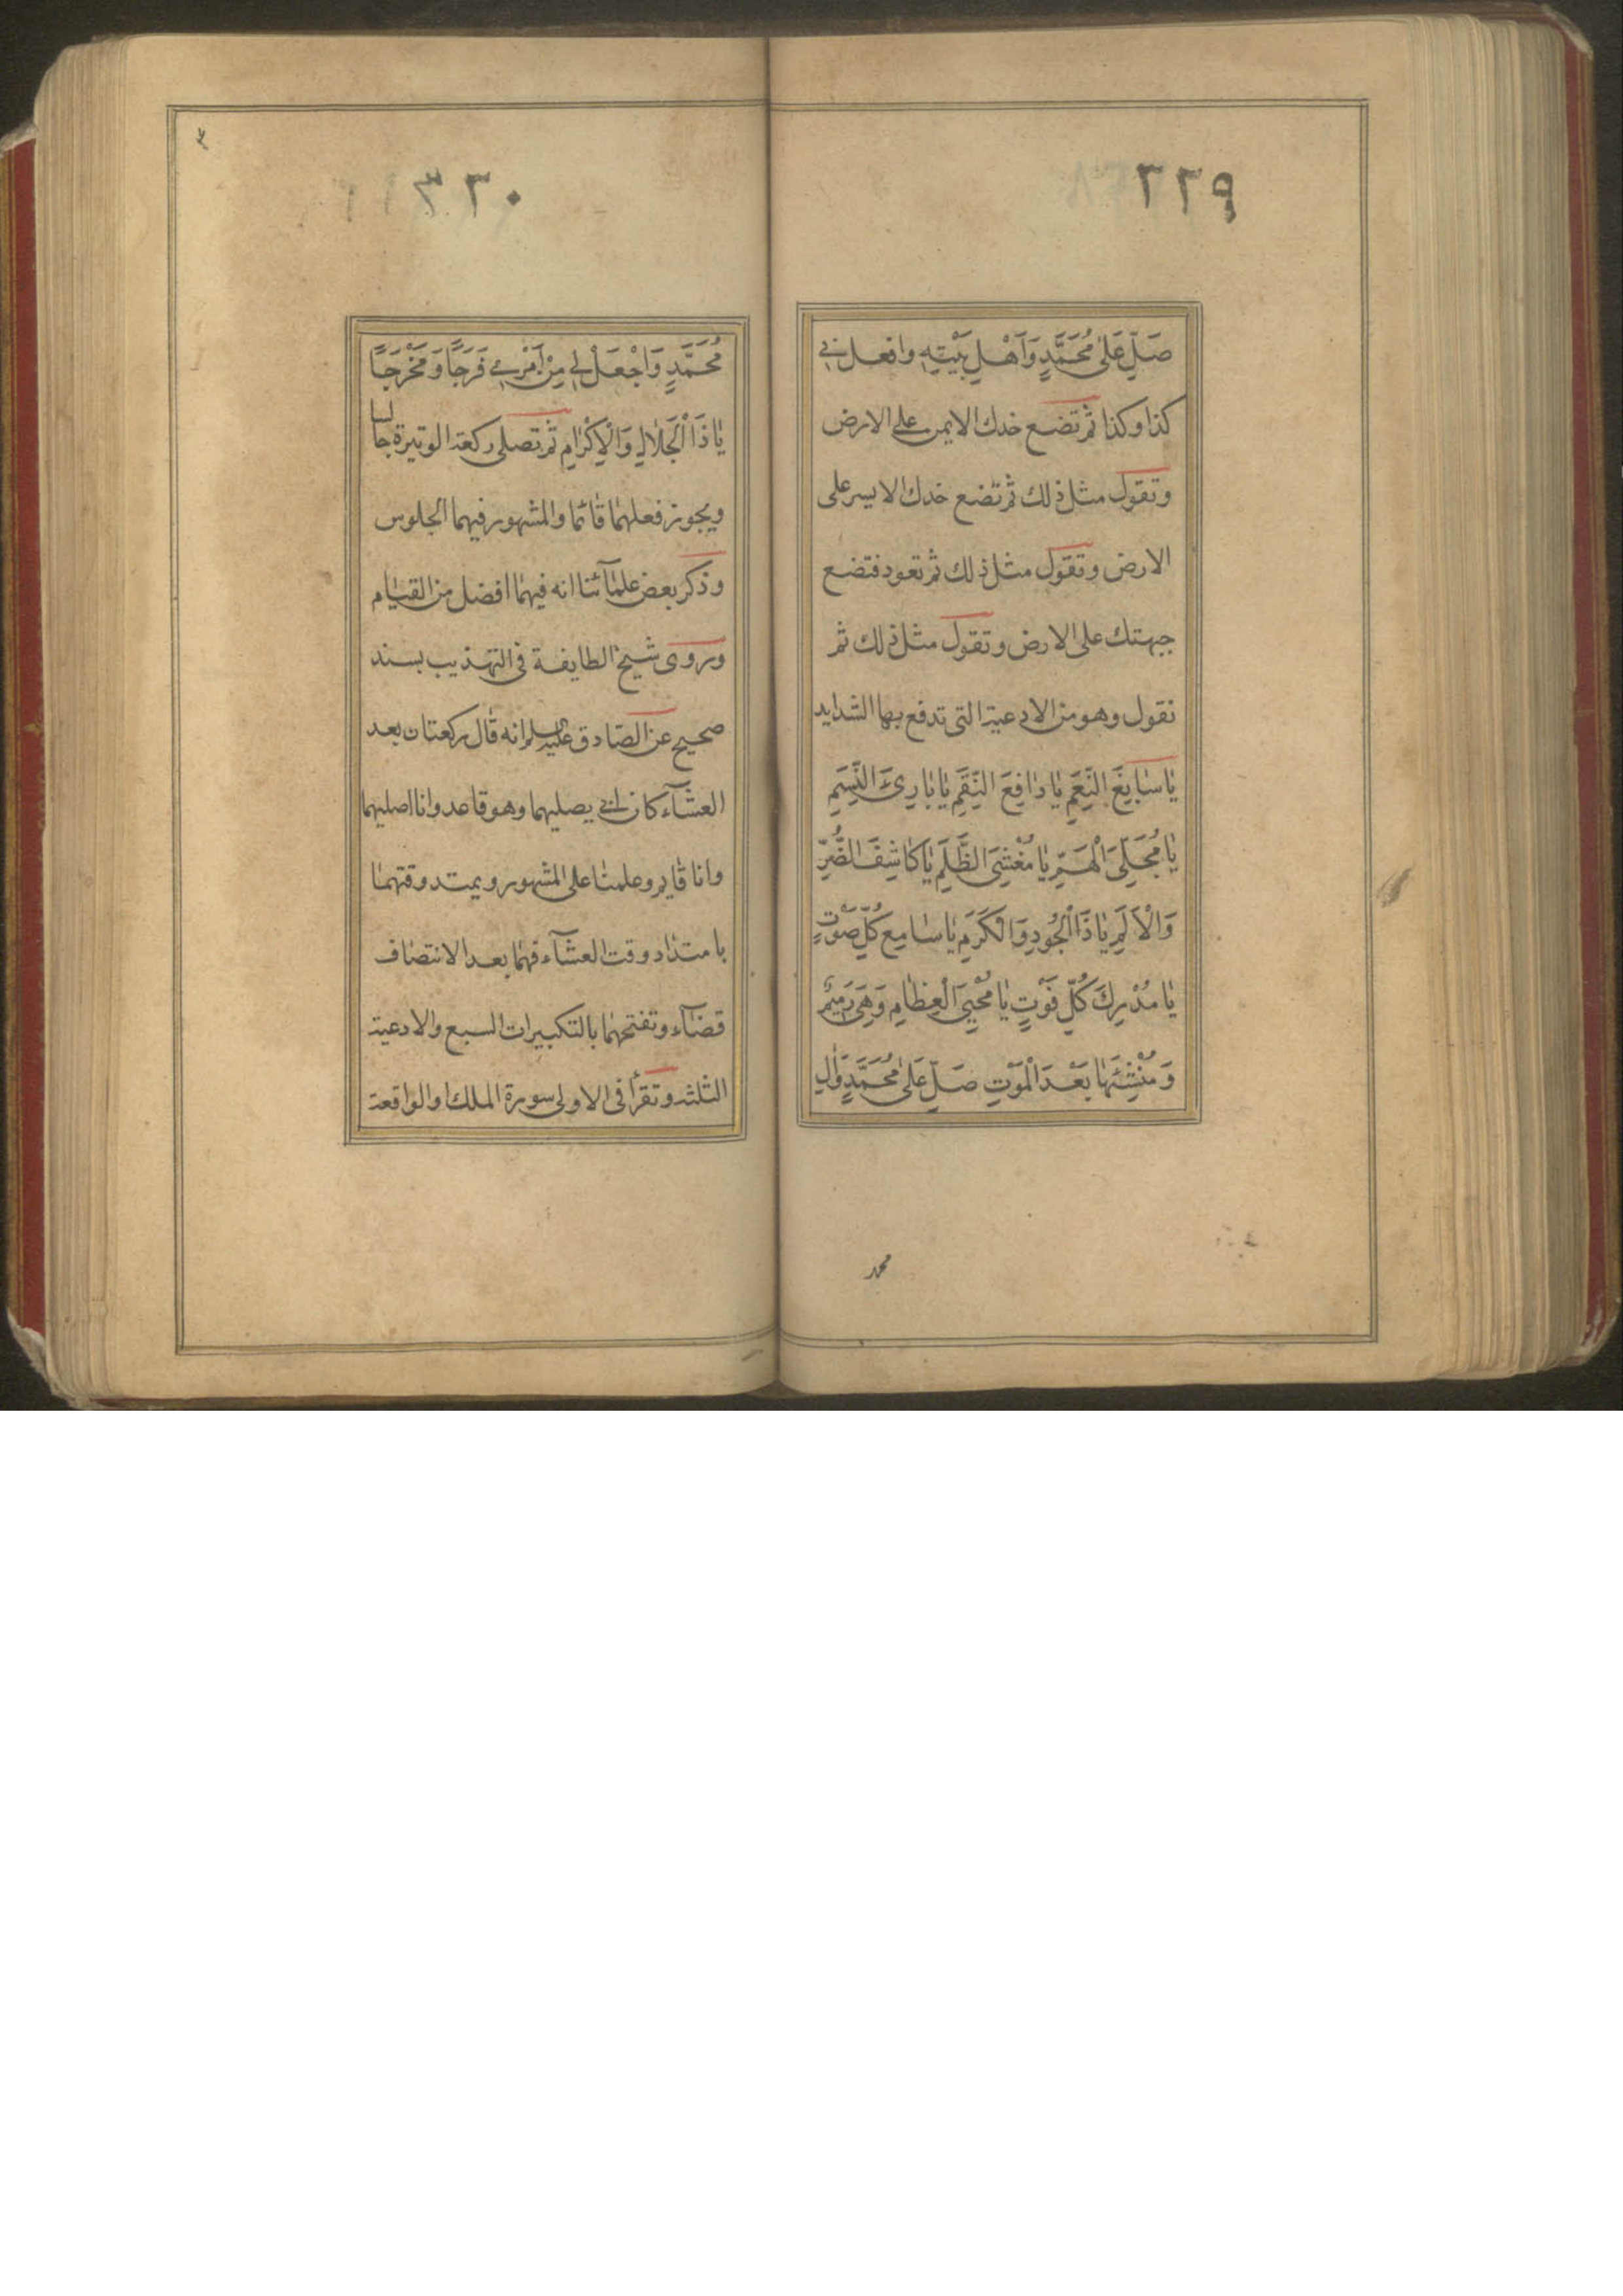 ٣٢٩
صَلِّ عَلىٰ مُحَمَّدٍ وَاَهْلِ بَيْتِهِ وافعل بي
كذا وكذا ثم تضع خدك الايمن على الارض
وتقول مثل ذلك ثم تضع خدك الايسر على
الارض وتقول مثل ذلك ثم تعود فتضع
جبهتك على الارض وتقول مثل ذلك ثم
تقول وهو من الادعية التى تدفع بها الشدايد
يٰا سٰابِغَ النِّعَمِ يٰا دٰافِعَ النِّقَمِ يٰا بٰارِئَ النَّسَمِ
يٰا مُجَلِّىَ الْهَمِّ يٰا مُغْشِىَ الظُّلَمِ يٰا كٰاشِفَ الضُّرِّ
وَالْاَلَمِ يٰا ذَا الْجُودِ وَالْكَرَمِ يٰا سٰامِعَ كُلِّ صَوْتٍ
يٰا مُدْرِكَ كُلِّ فَوْتٍ يٰا مُحْيِىَ الْعِظٰامِ وَهِىَ رَمِيْمٌ
وَمُنْشِئَهٰا بَعْدَ الْمَوْتِ صَلِّ عَلىٰ مُحَمَّدٍ وَاٰلِ
محمد
٣٣٠
مُحَمَّدٍ وَاجْعَلْ لِى مِنْ اَمْرِى فَرَجًا وَمَخْرَجًا
يٰا ذَا الْجَلٰالِ وَالْاِكْرٰامِ ثم تصلى ركعة الوتيرة جالسا
ويجوز فعلهما قائما والمشهور فيهما الجلوس
وذكر بعض علمآئنا انه فيهما افضل من القيام
وروى شيخ الطايفة فى التهذيب بسند
صحيح عن الصادق عليه السلم انه قال ركعتان بعد
العشآء كان ابى يصليهما وهو قاعد وانا اصليهما
وانا قايم وعلمنا على المشهور ويمتد وقتهما
بامتداد وقت العشآء فهما بعد الانتصاف
قضآء وتفتحهما بالتكبيرات السبع والادعية
الثلثه وتقرأ فى الاولى سورة الملك او الواقعة